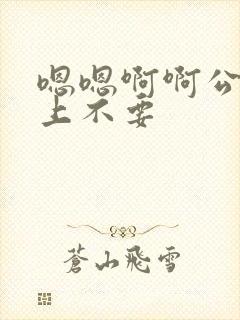 嗯嗯啊啊公
上不要
蒼山飛雪